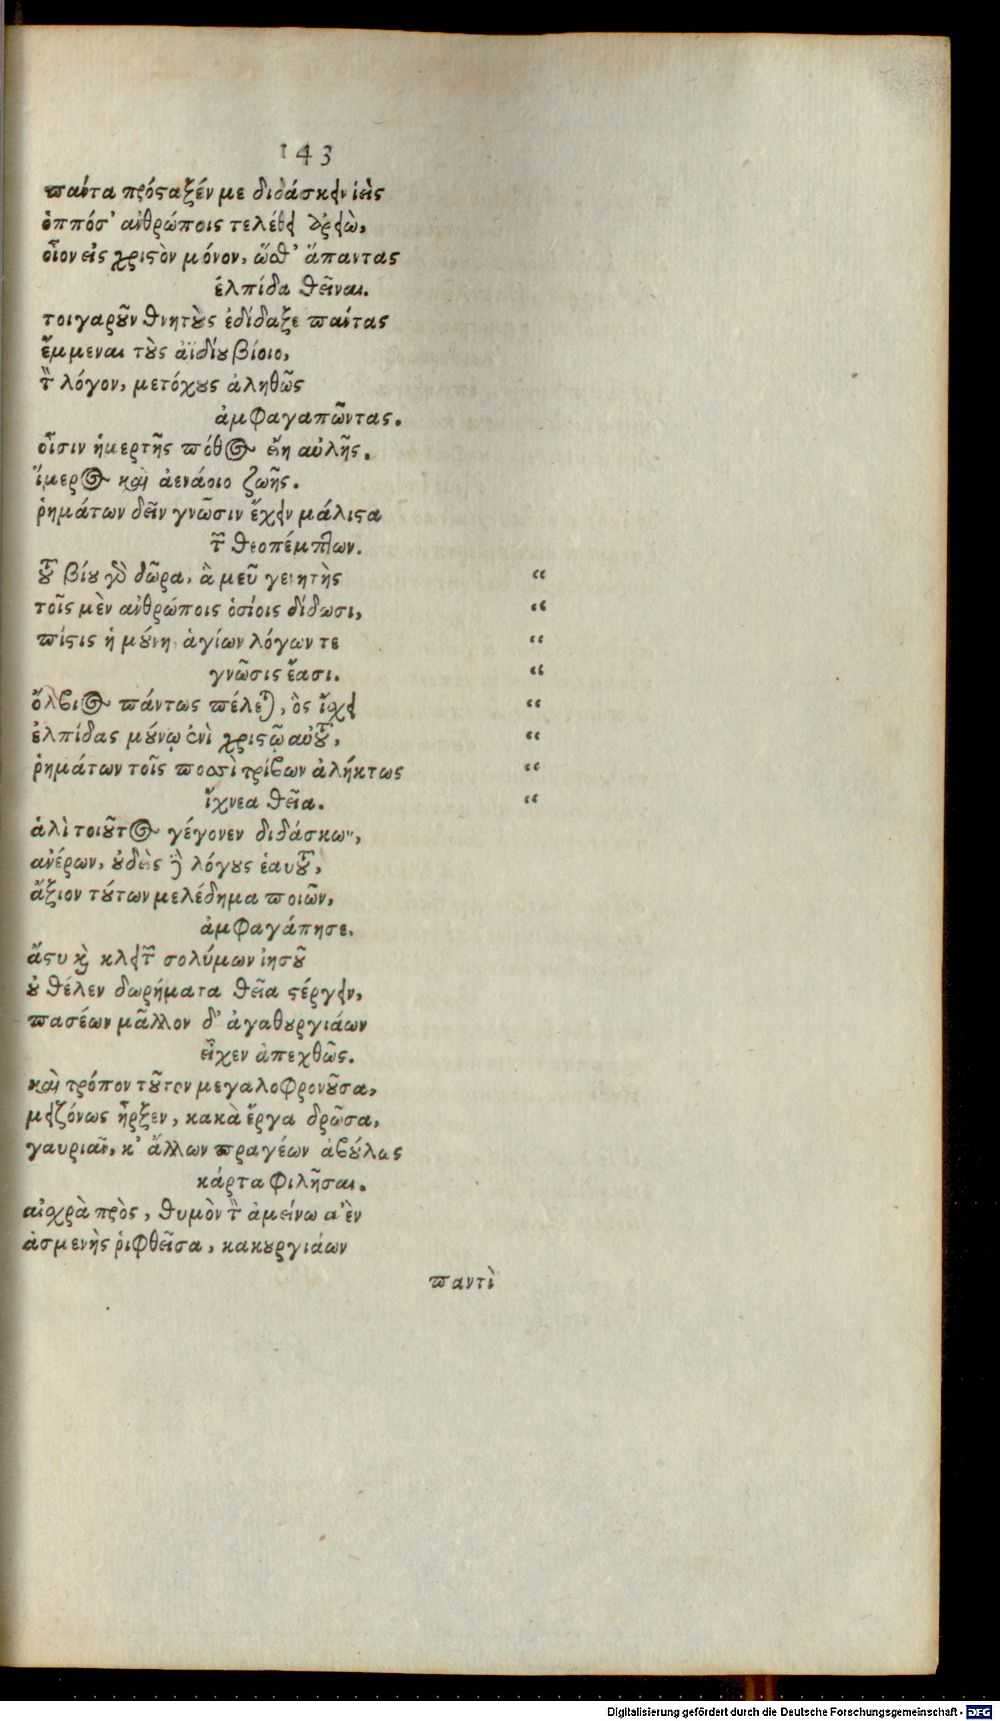 143
πάντα πρόσταξέν με διδάσκειν ἱεὶς
ὁππόσ' ἀνθρώποις τελέθει
οἷον εἰς χριστὸν μόνον, ὥσθ' ἅπαντας
ἐλπίδα θεῖναι.
τοιγαροῦν θνητοὺς ἐδίδαξε πάντας
ἔμμεναι τοὺς ἀϊδίου βίοιο,
τὸν λόγον, μετόχους ἀληθῶς
ἀμφαγαπῶντας.
οἷσιν ἡμερτῆς πόθος εἴη αὐλῆς.
ἵμερος καὶ ἀενάοιο ζωῆς.
ῥημάτων δεῖν γνῶσιν ἔχειν μάλιστα
τῶν θεοπέμπτων.
τοῦ βίου γὸ δῶρα, ἃ μεῦ γενητὴς “
τοῖς μὲν ἀνθρώποις ὁσίοις δίδωσι, “
πίστις ἡ μούνη ἁγίων λόγων τε “
γνῶσις ἔασι. “
ὄλβιος πάντως πέλεται, ὃς ἴσχει “
ἐλπίδας μούνῳ ἐνὶ χριστῷ αὐτοῦ, “
ῥημάτων τοῖς ποσσὶ τρίβων ἀλήκτως “
ἴχνεα θεῖα. “
ἀλὶ τοιοῦτος γέγονεν διδάσκων,
ἀνέρων, οὐδεὶς λόγους ἑαυτοῦ,
ἄξιον τούτων μελέδημα ποιῶν,
ἀμφαγάπησε.
ἄστυ καὶ κλειτὸν σολύμων ἰησοῦ
οὐ θέλεν δωρήματα θεῖα στέργειν,
πασέων μᾶλλον δ' ἀγαθουργιάων
εἶχεν ἀπεχθῶς.
καὶ τρόπον τοῦτον μεγαλοφρονοῦσα,
μειζόνως ἦρξεν, κακὰ ἔργα δρῶσα,
γαυριᾶν, κ' ἄλλων πραγέων ἀβούλως
κάρτα φιλῆσαι.
αἰσχρὰ πρὸς, θυμὸν τὸν ἀμείνω
ἀσμενὴς ῥιφθεῖσα, κακουργιάων
παντὶ
Digitalisierung gefördert durch die Deutsche Forschungsgemeinschaft - DFG